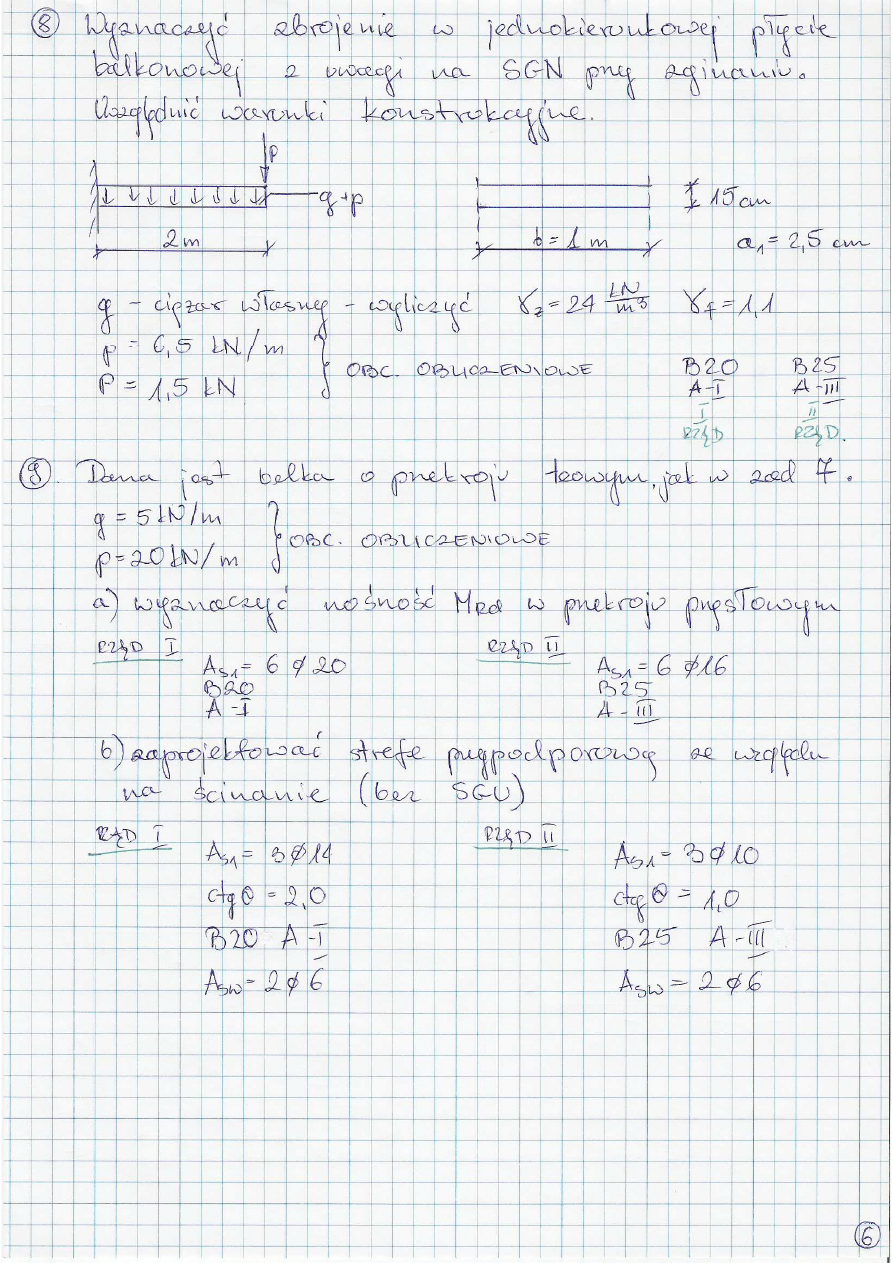 ⑧ Wyznaczyć zbrojenie w jednokierunkowej płycie
balkonowej z uwagi na SGN przy zginaniu.
Uwzględnić warunki konstrukcyjne.
P
g+p
2 m
b = 1 m
15 cm
a₁ = 2,5 cm
g - ciężar własny - wyliczyć γż = 24 kN/m³ γf = 1,1
p = 6,5 kN/m
P = 1,5 kN
} OBC. OBLICZENIOWE
B20 B25
A-I A-III
I II
RZĄD RZĄD.
⑨. Dana jest belka o przekroju teowym, jak w zad 7.
g = 5 kN/m
p = 20 kN/m
} OBC. OBLICZENIOWE
a) wyznaczyć nośność MRd w przekroju przęsłowym
RZĄD I RZĄD II
As1 = 6 ∅ 20 As1 = 6 ∅ 16
B20 B25
A-I A-III
b) zaprojektować strefę przypodporową ze względu
na ścinanie (bez SGU)
RZĄD I RZĄD II
As1 = 3 ∅ 14 As1 = 3 ∅ 10
ctg θ = 2,0 ctg θ = 1,0
B20 A-I B25 A-III
Asw = 2 ∅ 6 Asw = 2 ∅ 6
⑥